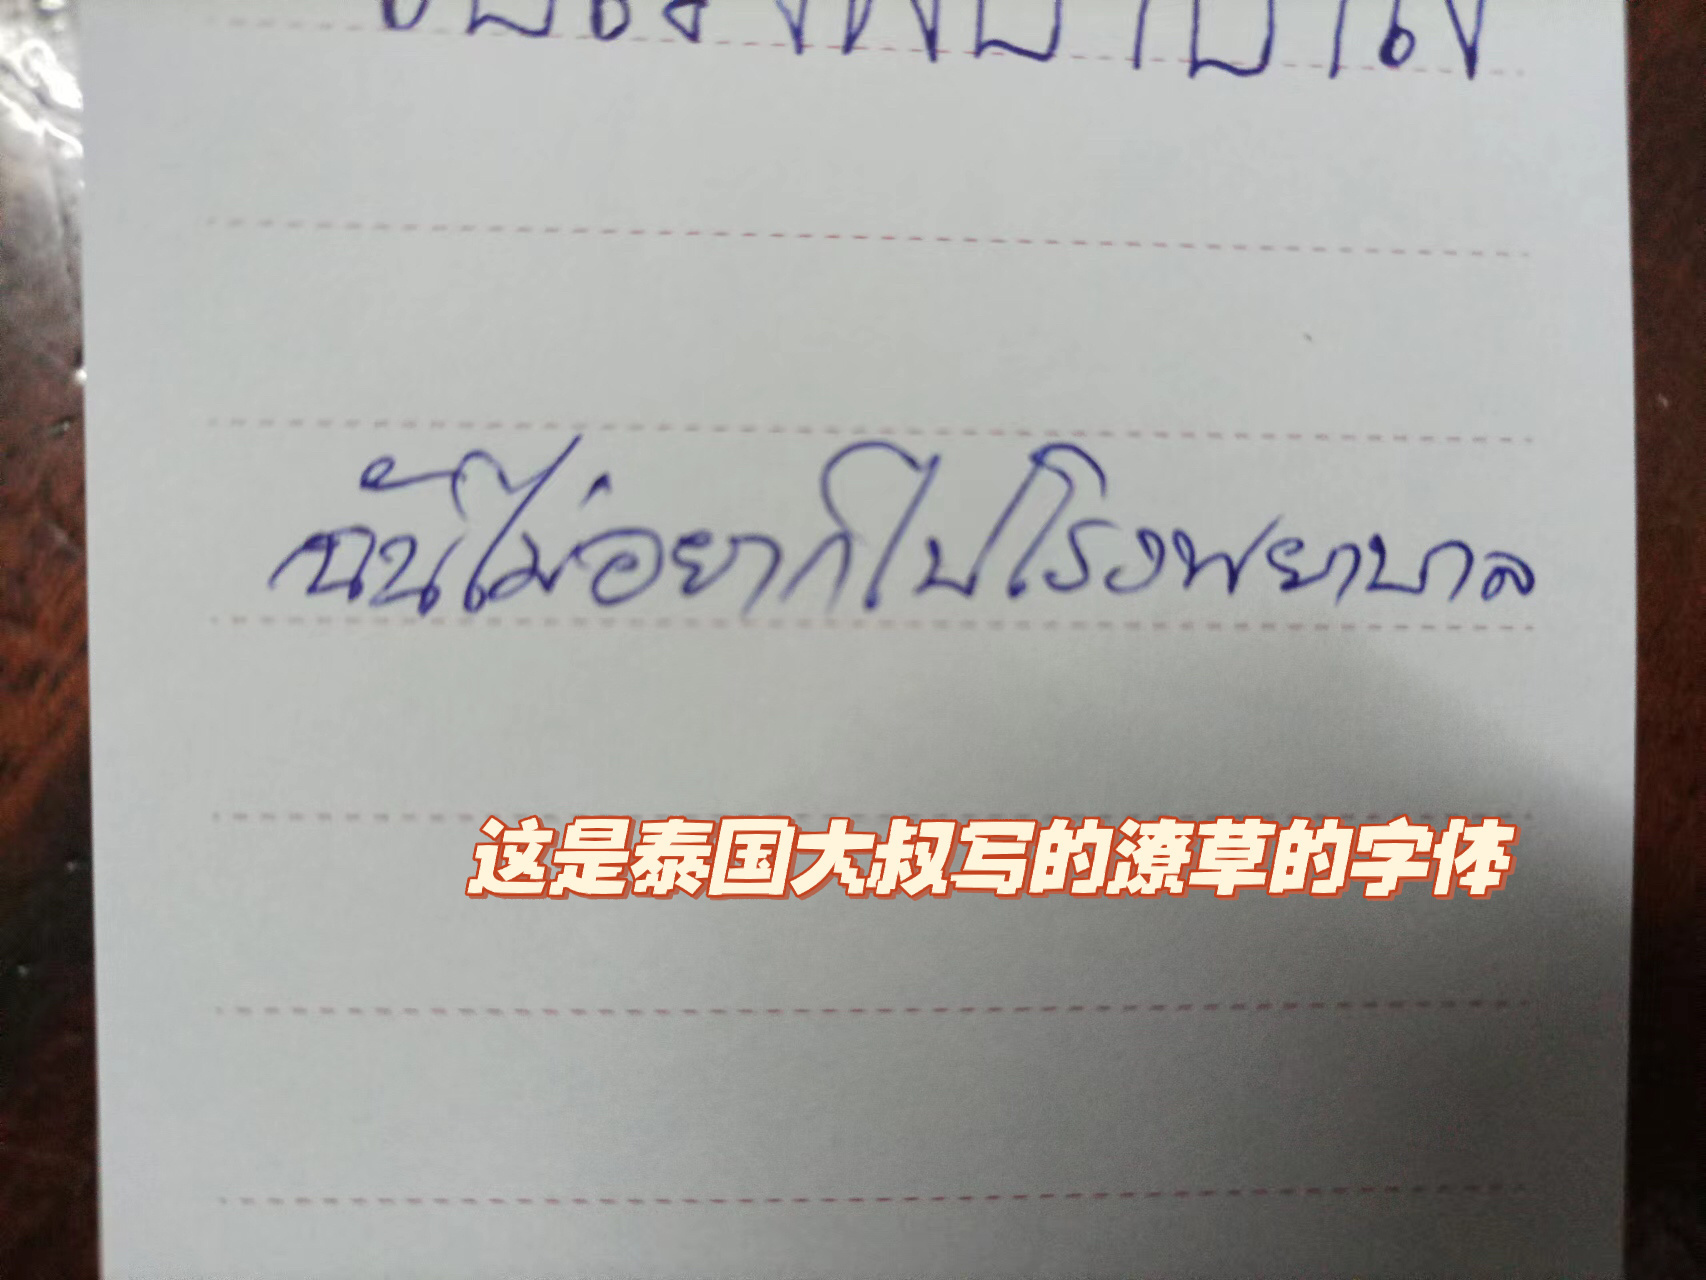 ฉันไม่อยากไปโรงพยาบาล
这是泰国大叔写的潦草的字体